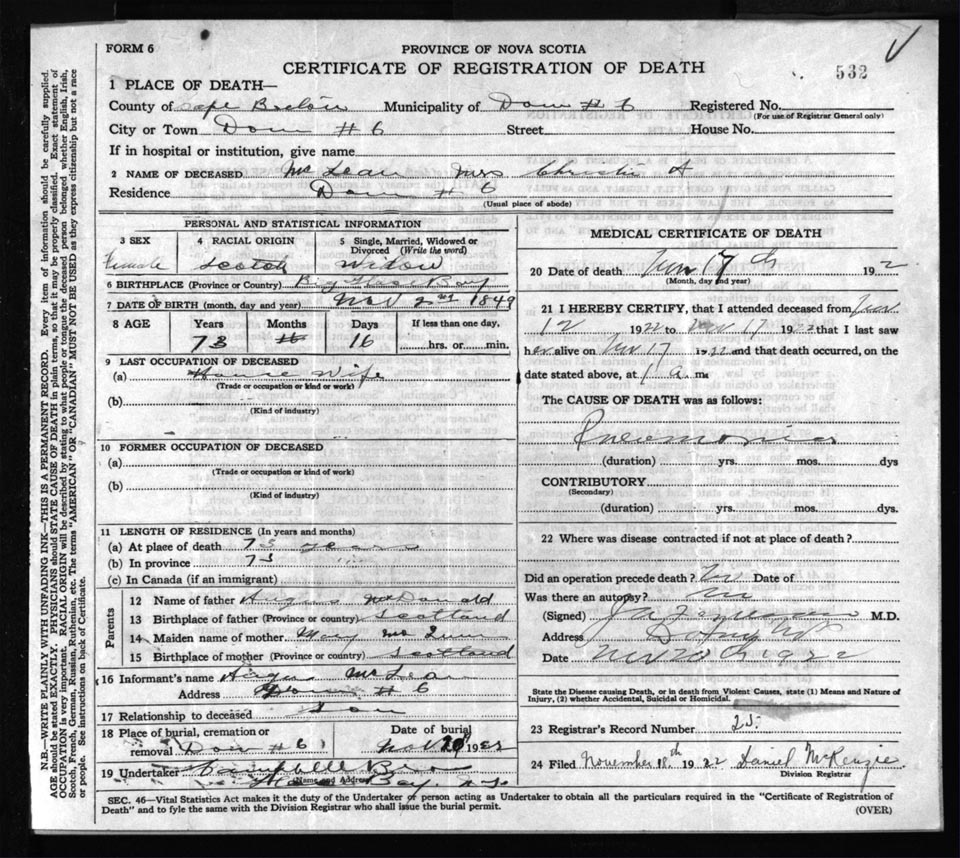 FORM 6
PROVINCE OF NOVA SCOTIA
CERTIFICATE OF REGISTRATION OF DEATH
532
1 PLACE OF DEATH—
County of Cape Breton Municipality of Dom # 6 Registered No.
(For use of Registrar General only)
City or Town Dom # 6 Street House No.
If in hospital or institution, give name
2 NAME OF DECEASED McLean Mrs Christie A
Residence Dom # 6
(Usual place of abode)
PERSONAL AND STATISTICAL INFORMATION
3 SEX Female
4 RACIAL ORIGIN Scotch
5 Single, Married, Widowed or Divorced (Write the word) Widow
6 BIRTHPLACE (Province or Country) Big Bay
7 DATE OF BIRTH (month, day and year) Nov 2nd 1849
8 AGE Years Months Days If less than one day,
73 16 hrs. or min.
9 LAST OCCUPATION OF DECEASED
(a) House Wife
(Trade or occupation or kind or work)
(b)
(Kind of industry)
10 FORMER OCCUPATION OF DECEASED
(a)
(Trade or occupation or kind of work)
(b)
(Kind of industry)
11 LENGTH OF RESIDENCE (In years and months)
(a) At place of death 73 years
(b) In province 73
(c) In Canada (if an immigrant)
Parents
12 Name of father Angus McDonald
13 Birthplace of father (Province or country) Scotland
14 Maiden name of mother Mary Mc
15 Birthplace of mother (Province or country) Scotland
16 Informant's name Angus McLean
Address Dom # 6
17 Relationship to deceased Son
18 Place of burial, cremation or removal Dom # 6
Date of burial Nov 1922
19 Undertaker Campbell Bros
(Name and Address) Bay
MEDICAL CERTIFICATE OF DEATH
20 Date of death Nov 17th 192
(Month, day and year)
21 I HEREBY CERTIFY, that I attended deceased from Nov
12 1922 to Nov 17 1922 that I last saw
her alive on Nov 17 1922 and that death occurred, on the
date stated above, at 1 a m.
The CAUSE OF DEATH was as follows:
Pneumonia
(duration) yrs. mos. dys
CONTRIBUTORY
(Secondary)
(duration) yrs. mos. dys.
22 Where was disease contracted if not at place of death?
Did an operation precede death? No Date of
Was there an autopsy? No
(Signed) M.D.
Address
Date Nov 20th 1922
State the Disease causing Death, or in death from Violent Causes, state (1) Means and Nature of
Injury, (2) whether Accidental, Suicidal or Homicidal.
23 Registrar's Record Number 25
24 Filed November 18th 1922 Daniel McKenzie
Division Registrar
SEC. 46—Vital Statistics Act makes it the duty of the Undertaker or person acting as Undertaker to obtain all the particulars required in the "Certificate of Registration of
Death" and to fyle the same with the Division Registrar who shall issue the burial permit.
(OVER)
N.B.—WRITE PLAINLY WITH UNFADING INK—THIS IS A PERMANENT RECORD. Every item of information should be carefully supplied.
AGE should be stated EXACTLY. PHYSICIANS should STATE CAUSE OF DEATH in plain terms, so that it may be properly classified. Exact statement of
OCCUPATION is very important. RACIAL ORIGIN will be described by stating to what people or tongue the deceased person belonged whether English, Irish,
Scotch, French, German, Russian, Ruthenian, etc. The terms "AMERICAN" OR "CANADIAN" MUST NOT BE USED as they express citizenship but not a race
or people. See instructions on back of Certificate.